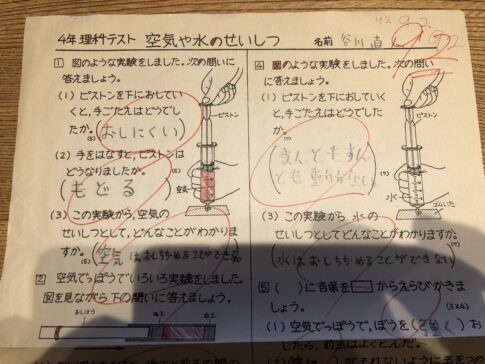 4年 理科テスト 空気や水のせいしつ 名前 谷川 直
92
92
1 図のような実験をしました。次の問いに
答えましょう。
(1) ピストンを下におしてい
くと、手ごたえはどうでし
たか。
(5)
(おしにくい)
(2) 手をはなすと、ピストンは
どうなりましたか。
(もどる)
ピストン
空気
(3) この実験から、空気の
せいしつとして、どんなことがわかりま
すか。
(5)
(空気はおしちぢめることができる)
2 空気でっぽうでいろいろ実験をしました。
図を見ながら下の問いに答えましょう。
おしぼう
後玉
前玉
4 図のような実験をしました。次の問い
に答えましょう。
(1) ピストンを下におしていく
と、手ごたえはどうでした
か。
(うんともすん
とも
ピストン
水
ゴムいた
(3) この実験から、水の
せいしつとしてどんなことがわかりますか。
(水はおしちぢめることができない)
5 ( )に言葉を からえらびかきま
しょう。
(5×4)
(1) 空気でっぽうで、ぼうを(強く)お
したら、前玉はよくとんだ。